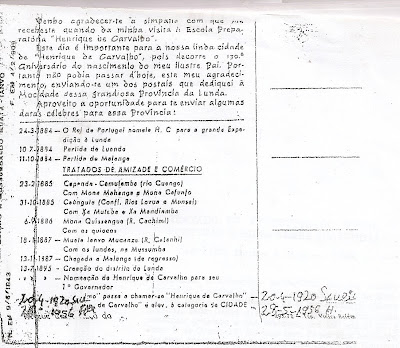 Venho agradecer-te a simpatia com que me
recebeste quando da minha visita à Escola Prepa-
ratória "Henrique de Carvalho".
Este dia é importante para a nossa linda cidade
de "Henrique de Carvalho", pois decorre o 130.º
Aniversário do nascimento do meu Ilustre Pai. Por-
tanto não podia passar d'hoje, este meu agradeci-
mento, enviando-te um dos postais que dediquei à
Mocidade dessa grandiosa Província da Lunda.
Aproveito a oportunidade para te enviar algumas
datas célebres para essa Província:
24-3-1884 — O Rei de Portugal nomeia H. C. para a grande Expe-
dição à Lunda
10-7-1884 — Partida de Luanda
11-10-1884 — Partida de Malange
TRATADOS DE AMIZADE E COMÉRCIO
23-2-1885 Capenda - Camulemba (rio Cuango)
Com Mona Mahango e Mona Cafunfo
31-10-1885 Cabingula (Confl. Rios Larua e Monsai)
Com Xa Mutaba e Xa Mandimba
6-9-1886 Mona Quissengua (R.
Com os quiocos
18-1-1887 — Muata Ianvo Mucanza (R. Calanhi)
Com os lundas, na Mussumba
13-1887 — Chegada a Malange (de regresso)
13-7-1895 — Creação do distrito da Lunda
» » » — Nomeação de Henrique de Carvalho para seu
1.º Governador
passa a chamar-se "Henrique de Carvalho"
de Carvalho" é elev. à categoria de CIDADE
20-4-1920
28-5-1956
20-4-1920
28-5-1956